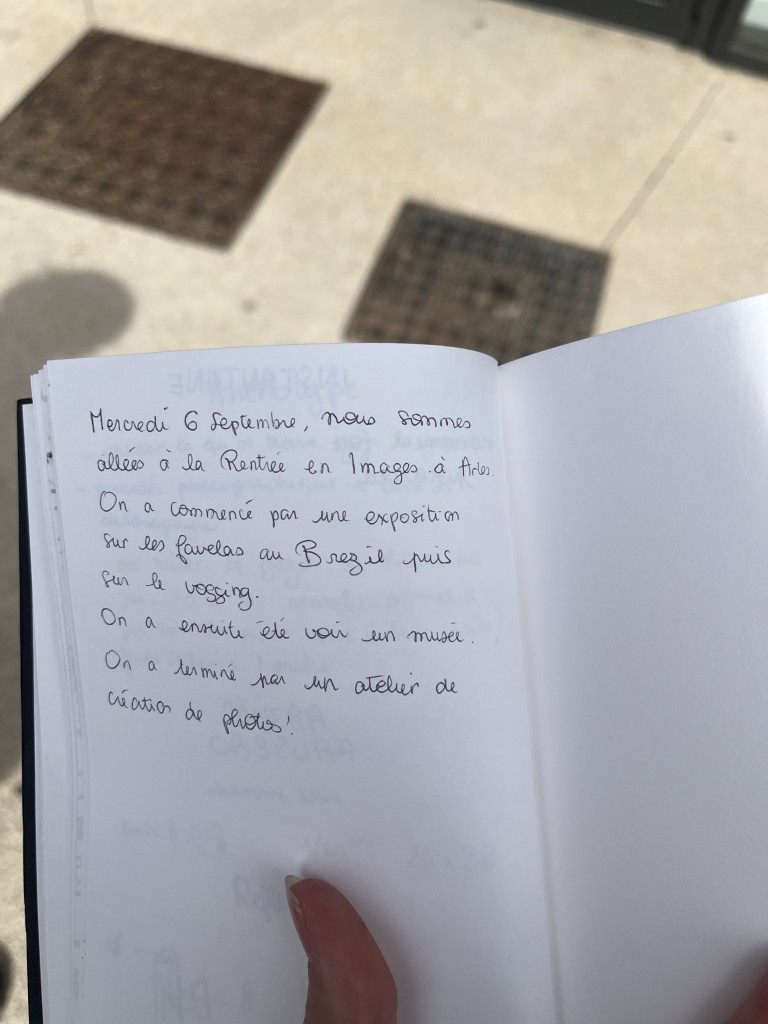 Mercredi 6 Septembre, nous sommes
allées à la Rentrée en Images à Arles.
On a commencé par une exposition
sur les favelas au Brezil puis
sur le vogging.
On a ensuite été voir un musée.
On a terminé par un atelier de
création de photos!